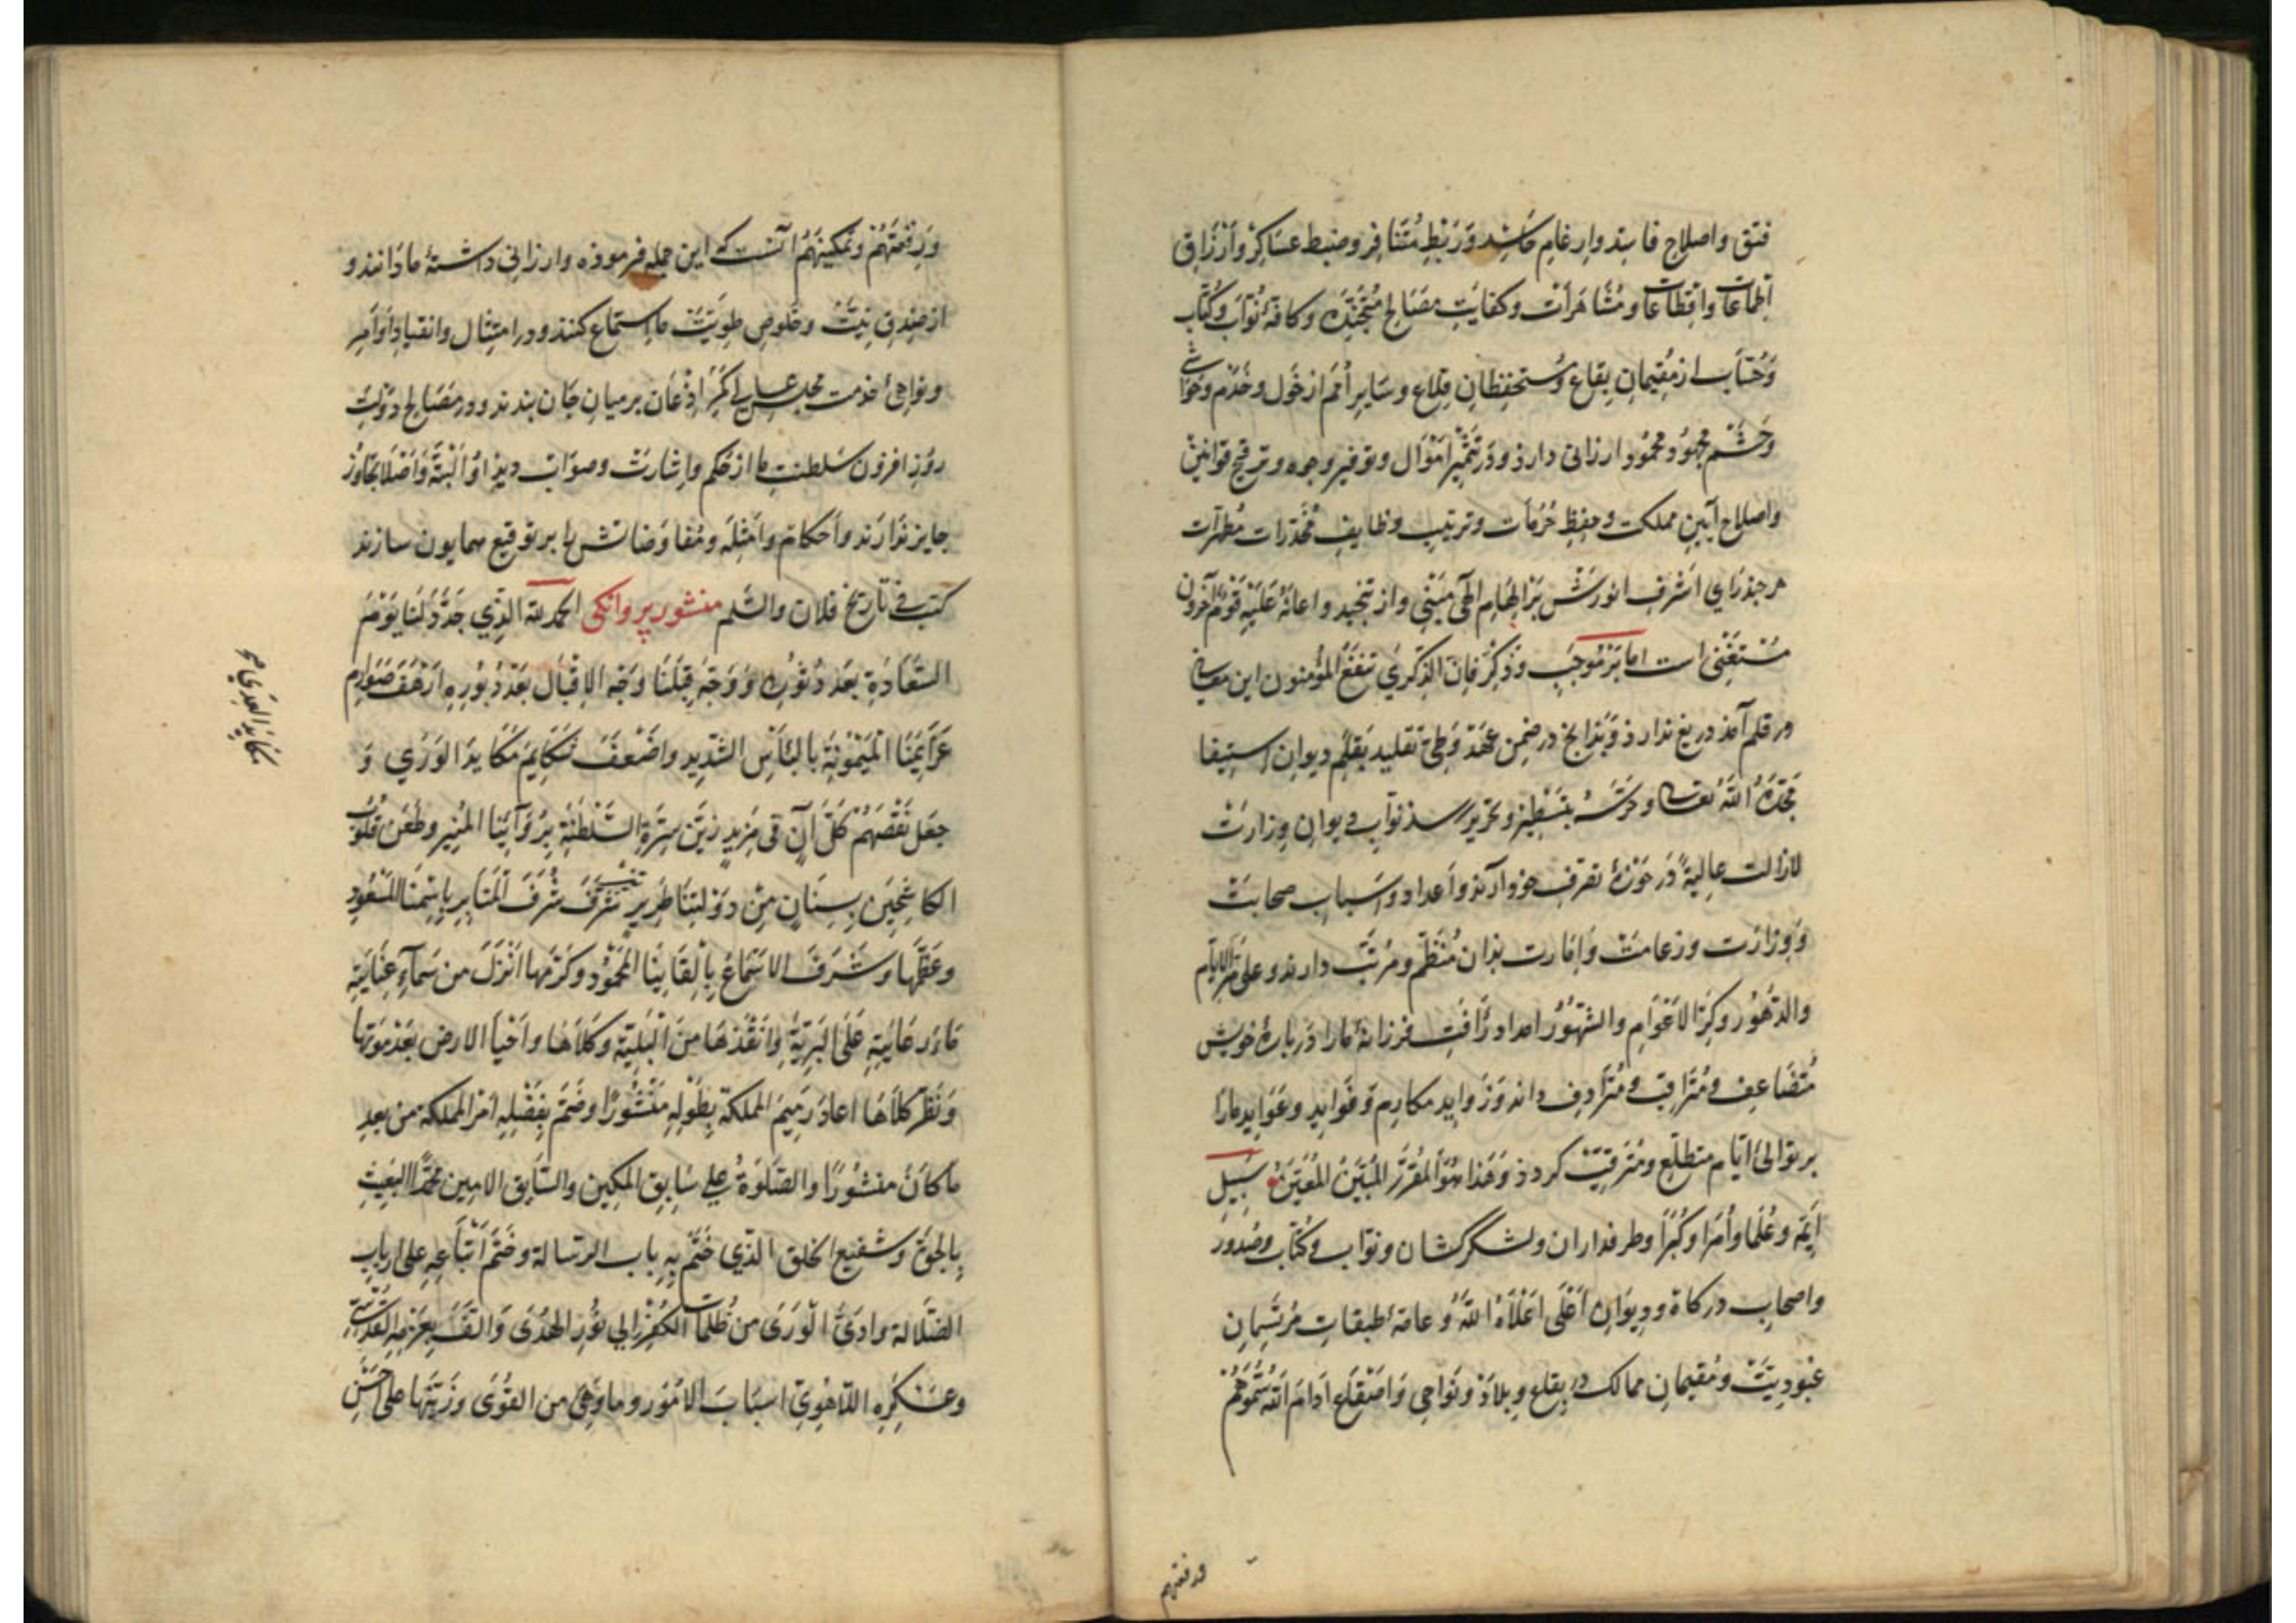 فتق و اصلاح فاسد و ارغام حاسد وَ رَبْطِ مُتَنافِر و ضبط عَساکِرْ وَ اَرْزَاقِ
اِطماعات و اقطاعات و مُشاهَرَات و کفایَتِ مَصَالِح مُتَجَنِّدَه و کافّهٔ نُوّاب وَ کُتّاب
وَ حُسّاب از مُقیمانِ بِقاع و مُستحفِظانِ قِلاع و سَایِرِ اُمَم از خَوَل و خَدَم وَ حَوَاشی
وَ حَشَم مجهود و محمُود ارزانی دارد و دَر تَثْمِیْرِ اَمْوَال و توفیرِ وجوه و ترقیحِ قوانین
و اصلاح آیین مملکت و حِفظِ حُرُمَات و ترتیبِ وظایفِ مُخَدَّراتِ مُطهّرات
هر چند رَایِ اَشْرفِ انورَشْ بَر اِلهَامِ الٓهی مَبْنی و از تنجید و اعانهُ عَلَیْهِ قَوْمٌ آخَرُونَ
مُسْتَغْنِی است اما بَر مُوجَبِ وَ ذَکِّرْ فَاِنَّ الذِّکْرَیٰ تنفَعُ المُؤمنون این معانی
در قلم آمد دریغ ندارد وَ بَدانچ در ضِمنِ عَقْد وَ طَیِّ تقلید بقلَمِ دیوانِ استیفا
مَجَّدَهُ اللّهُ تعالی و حَرَسَهُ بتَسْطِیر و تحریرِ رسد نوّابِ دیوانِ وِزارَتْ
لازالت عالیةً دَر حَوْزهٔ تصَرّف خود آرند و اَعداد و اَسبابِ صحابَتْ
وَ وِزارَت و زعامَتْ وَ اِمَارت بذان مُنَظّم و مُرتَّب دارند و علی مَرِّ الایّام
و الدُّهُوْر و کَرِّ الاَعْوَامِ و الشُّهُوْر امداد رَافَتِ فرزانهٔ ما را دَر بارهٔ خویش
مُتَضَاعِف و مُتَرَاقِبْ و مُتَرَادِف داند وَ زَوایدِ مکارِم وَ فَوَایِدِ و عَوَایدِ ما را
بر توالیِ ایّام متطلّع و مُتَرقِّبْ کردد وَ هَذا هُوَ المُقَرَّرُ المُبَیَّنُ المُعَیَّنُ سَبِیلِ
ایَمّه و عُلَما و اُمَرا و کُبَرَا و طرفداران و لشکرکشان و نوّاب و کُتّاب و صُدُور
و اصحابِ درکاه و دیوَانِ اَعْلَی اَعْلَاهُ اللّهُ و عامهٔ طبقاتِ مُرتَسِمانِ
عُبُودِیّت و مُقیمانِ ممالک در بِقاع و بِلاد و نَواحِی وَ اصقاع اَدَامَ اللّهُ سُمُوَّهُمْ
ورفعتهم
وَرِفْعَتَهُمْ وَتمکینَهُمْ آنست که این جمله فرموده و ارزانی داشتهٔ ما دَانند و
از صِدقِ نِیَّتْ و خُلوصِ طَوِیَّتْ ما استماع کنند و در امتِثال و انقیادِ اَوَامِر
و نواهی خدمت مجلس عالی کَمَرِ اِذْعَان بر میانِ جَان بندند و در مَصَالح دَوْلتِ
روز افزون سَلطنت ما از حُکم و اشارَت و صوابْ دیدِ اوُ اَلْبتَّهْ وَ اَصْلاً تجَاوُز
جایز نَدَارَند و اَحکام و امْثِلَه و مُفاوَضاتش را بر توقیعِ همایون سازند
کتب فی تاریخ فلان والسّلم منشور پروانکی الحمد للّه الذّی جَدَّدَ لَنا یَوْمَ
السَّعَادَةِ بَعدَ دُثُورِه وَ وَجَّهَ قِبَلَنَا وَجْهَ الاِقْبَال بَعْدَ دُبُورِه اَرْهَفَ صَوَارِمَ
عَزَائِمِنَا الْمَیْمُونَةِ بالبَأْسِ الشّدِیدِ وَ اَضْعَفَ شَکَایِمَ مَکَایِدِ الوَرَی وَ
جَعَل نَقْصَهُمْ کُلَّ آنٍ فی مَزِیدٍ زیّن سِرّة السَّلطنةِ بِرُوَآئِنَا المُنِیر وَ طَعَن قُلُوْبَ
الکاشِحِیْنَ بِسِنَانٍ مِنْ دَوْلَتِنَا طَرِیرٍ شَرَّفَ شُرَفَ المَنَابِرِ بِاِسْمِنَا المَسْعُودِ
و عَظَّمَهَا وَ شَرَّفَ الاَسْمَاعَ بِأَلقَابِنَا المَحْمُوْد و کَرّمَها اَنْزَلَ من سَمآءِ عِنَایَتِهِ
مَاءَ رِعَایَتِهِ عَلَی البَرِیَّةِ وَ اَنْقَذَهَا مِنَ الْبَلِیَّةِ وَ کَلَأَهَا وَ اَحْیَا الارض بَعْدَ مَوْتِهَا
وَ نَضَّرَ کَلَأَهَا اعَادَ رَمِیمَ المملکة بِطَوْلِهِ مَنْشُوْرًا وَ ضَمَّ بِفَضْلِهِ اَمْرَ المملکة من بعدِ
ما کَانَ منشُوْرًا و الصّلوةُ علی سَابِق المکین و السَّابق الامین محمّدٍ البَعِیثِ
بِالحَقّ وَ شَفیعِ الخلق الذّی خَتَم بِهِ بابَ الرسالة و خَتَم اَتْبَاعِهِ علی اربابِ
الضّلالة وَ ادَّی الْوَرَی من ظُلمات الکُفْر الی نُوْرِ الهُدَی وَ اَلفَ بِعَزْمِهِ القُدْسِیِّ
و عَسْکَرِه اللّاهُوتیّ اسبَابَ الامُوْر و ما وَهِیَ من القُوَی وَ زَیَّنَها علی اَحْسَنِ